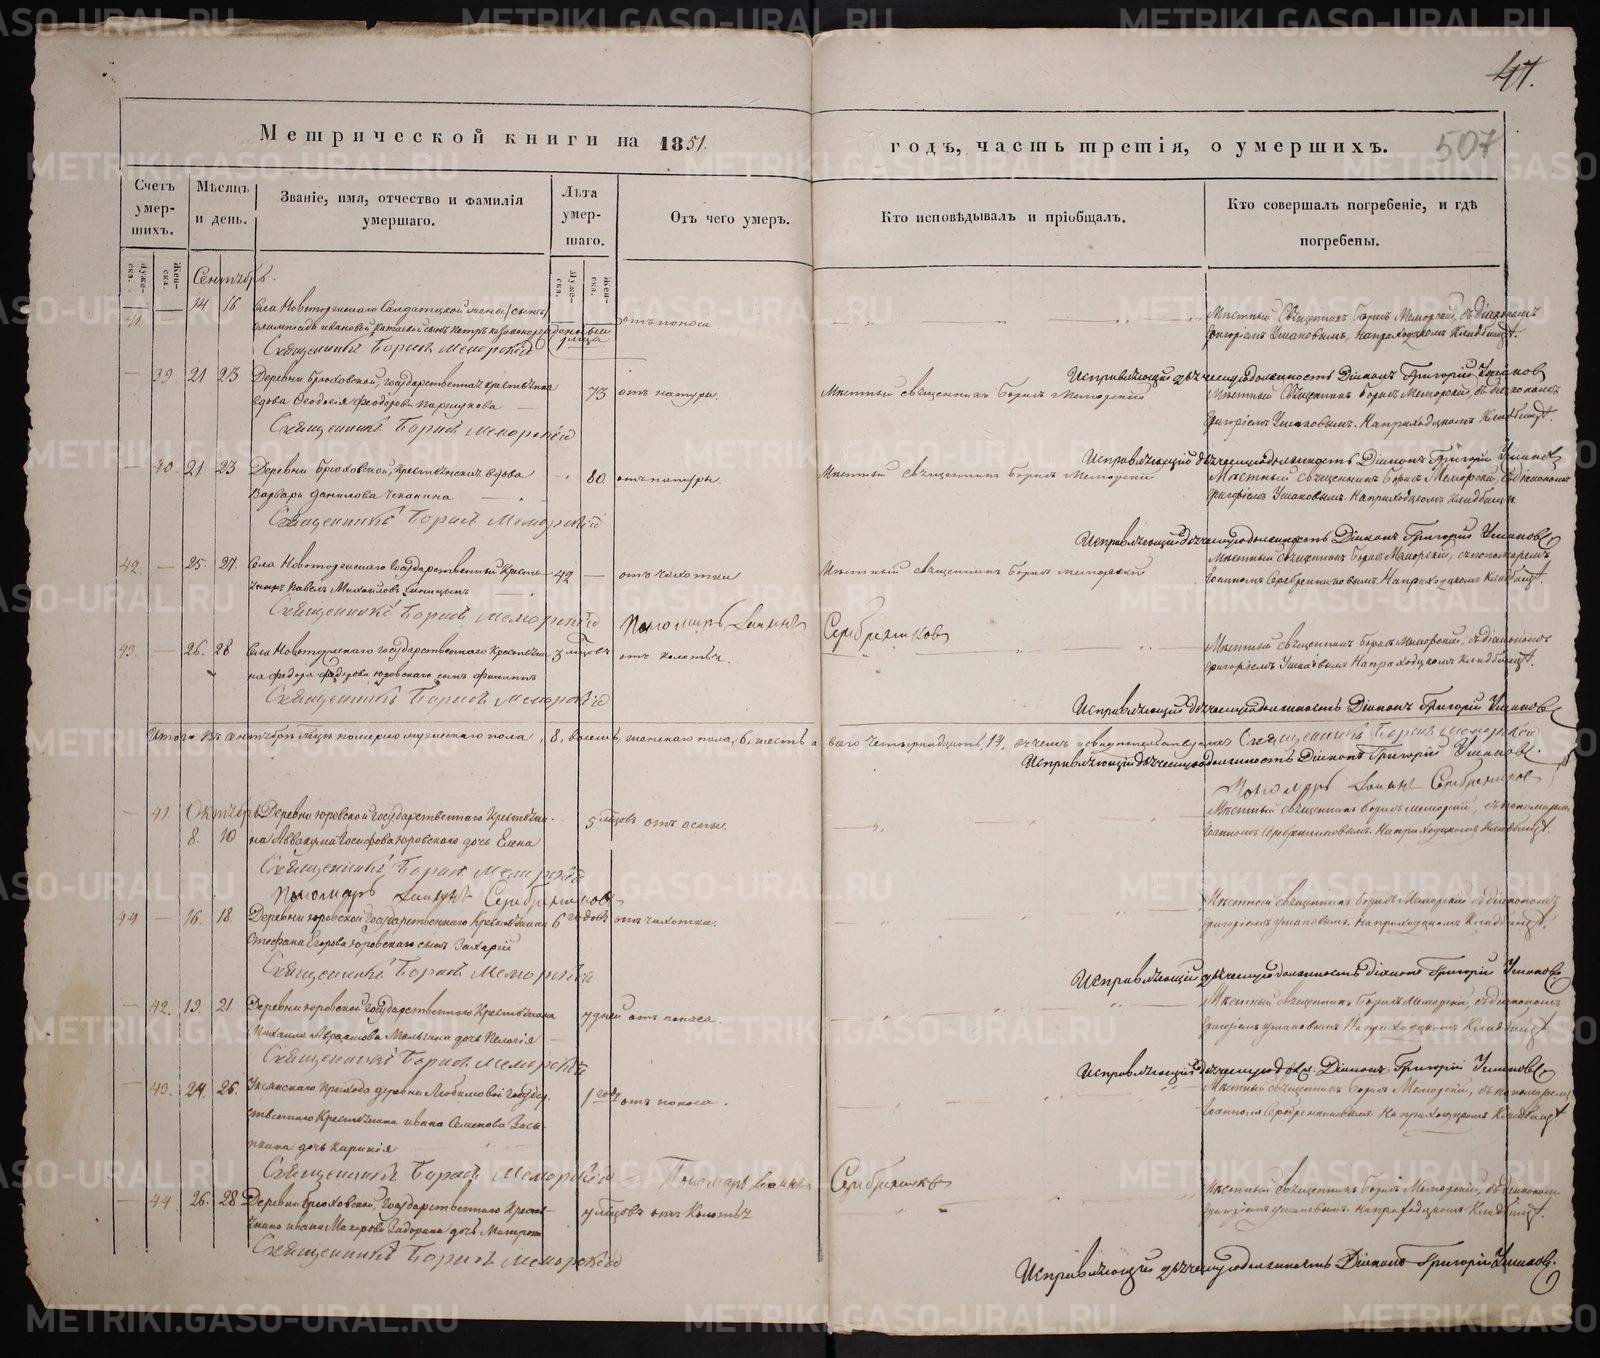 47.
507
Метрической книги на 1851. годъ, часть третія, о умершихъ.
Счетъ умер-шихъ.
Мѣсяцъ и день.
Званіе, имя, отчество и фамилія умершаго.
Лѣта умер-шаго.
Отъ чего умеръ.
Кто исповѣдывалъ и пріобщалъ.
Кто совершалъ погребеніе, и гдѣ погребены.
Муже-ска.
Жен-ска.
Муже-ска.
Жен-ска.
Сентябрь.
41. — 14 16 Села
отъ поноса
Мѣстный Священникъ Борисъ Меморскій, съ діакономъ
Григоріемъ Ушаковымъ. На приходскомъ Кладбищѣ.
Священникъ Борисъ Меморскій
Исправляющій дьяческую должность Діаконъ Григорій Ушаковъ
— 39. 21 23 Деревни Брюховской, государственная крестьянка
вдова Ѳеодосія Ѳеодорова
73 отъ натуры.
Мѣстный священникъ Борисъ Меморскій
Мѣстный Священникъ Борисъ Меморскій, съ діакономъ
Григоріемъ Ушаковымъ. На приходскомъ Кладбищѣ.
Священникъ Борисъ Меморскій
Исправляющій дьяческую должность Діаконъ Григорій Ушаковъ
— 40. 21 23 Деревни Брюховской, крестьянская вдова
Варвара Данилова Чекалина
80 отъ натуры.
Мѣстный священникъ Борисъ Меморскій
Мѣстный священникъ Борисъ Меморскій, съ діакономъ
Григоріемъ Ушаковымъ. На приходскомъ Кладбищѣ.
Священникъ Борисъ Меморскій
Исправляющій дьяческую должность Діаконъ Григорій Ушаковъ
42. — 25. 27. Села государственный Кресть-
янинъ Павелъ Михайловъ
42 — отъ чахотки
Мѣстный священникъ Борисъ Меморскій
Мѣстный священникъ Борисъ Меморскій, съ пономаремъ
Іоанномъ Серебренниковымъ. На приходскомъ Кладбищѣ.
Священникъ Борисъ Меморскій
Пономарь Іоаннъ Серебрениковъ
43. — 26. 28 Села государственнаго Крестьяни-
на Федора Федорова Юровскаго сынъ Филиппъ
3 мѣсяцовъ отъ колотья.
Мѣстный священникъ Борисъ Меморскій, съ діакономъ
Григоріемъ Ушаковымъ На приходскомъ Кладбищѣ.
Священникъ Борисъ Меморскій
Исправляющій дьяческую должность Діаконъ Григорій Ушаковъ
Итого въ сентябрѣ мѣсяцѣ померло мужескаго пола, 8, восемь, женскаго пола, 6, шесть, а всего четырнадцать, 14. въ чемъ и свидѣтельствуемъ Священникъ Борисъ Меморскій
Исправляющій дьяческую должность Діаконъ Григорій Ушаковъ.
Пономарь Іоаннъ Серебрениковъ
Октябрь
— 41. 8. 10 Деревни Юровской государственнаго Крестьяни-
на Аввакума Іосифова Юровскаго дочь Елена
5 мѣсяцовъ отъ оспы.
Мѣстный священникъ Борисъ Меморскій, съ пономаремъ
Іоанномъ Серебренниковымъ. На приходскомъ Кладбищѣ.
Священникъ Борисъ Меморскій
Пономарь Іоаннъ Серебрениковъ
44 — 16. 18. Деревни Юровской государственнаго Крестьянина
Стефана Егорова Юровскаго сынъ Захарій
6 годовъ отъ чахотки.
Мѣстный священникъ Борисъ Меморскій съ діакономъ
Григоріемъ Ушаковымъ. На приходскомъ Кладбищѣ.
Священникъ Борисъ Меморскій
Исправляющій дьяческую должность діаконъ Григорій Ушаковъ
— 42. 19. 21 Деревни Юровской государственнаго Крестьянина
Михаила дочь Пелагія
7 дней отъ поноса.
Мѣстный священникъ Борисъ Меморскій, съ діакономъ
Григоріемъ Ушаковымъ На приходскомъ Кладбищѣ
Священникъ Борисъ Меморскій
Исправляющій Діаконъ Григорій Ушаковъ
— 43. 24. 26. прихода деревни Любимовой государ-
ственнаго Крестьянина Ивана Семенова
дочь
1 года отъ поноса.
Мѣстный священникъ Борисъ Меморскій, съ пономаремъ
Іоанномъ Серебренниковымъ. На приходскомъ Кладбищѣ
Священникъ Борисъ Меморскій
Пономарь Іоаннъ Серебрениковъ
— 44 26. 28 Деревни Брюховской, государственнаго Кресть-
янина Ивана Макарова дочь
7 мѣсяцовъ отъ колотья
Мѣстный священникъ Борисъ Меморскій, съ діакономъ
Григоріемъ Ушаковымъ. На приходскомъ Кладбищѣ.
Священникъ Борисъ Меморскій
Исправляющій дьяческую должность Діаконъ Григорій Ушаковъ.
METRIKI.GASO-URAL.RU